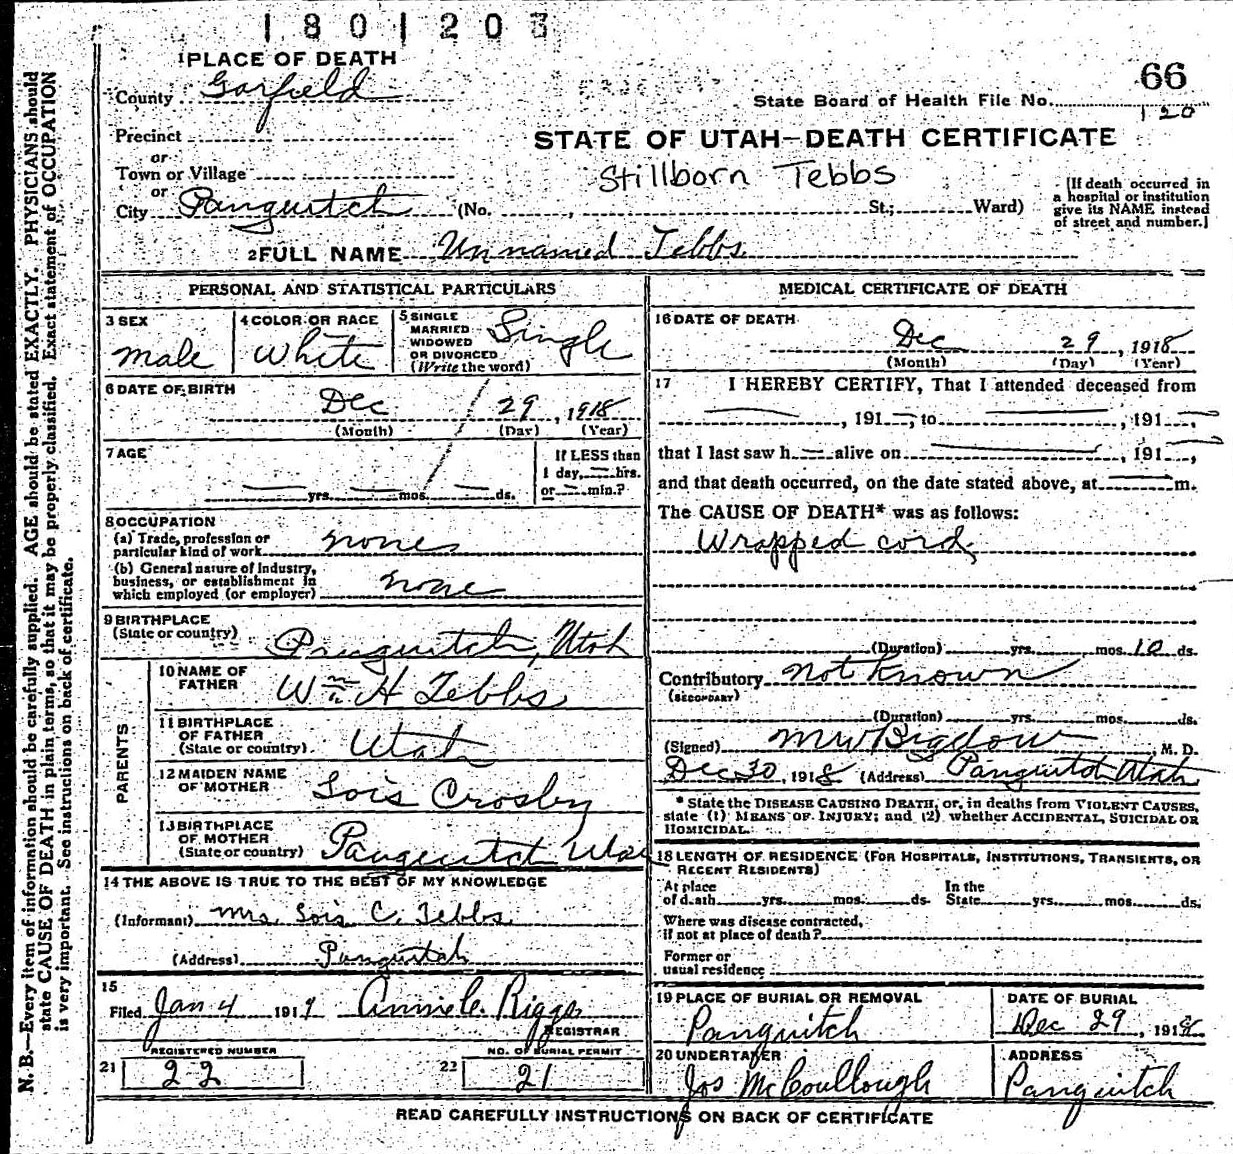 1801203
1 PLACE OF DEATH
County Garfield
66
State Board of Health File No.
120
Precinct
or
STATE OF UTAH—DEATH CERTIFICATE
Town or Village
or
Stillborn Tebbs
City Panguitch (No. , St.; Ward)
[If death occurred in
a hospital or institution
give its NAME instead
of street and number.]
2 FULL NAME Unnamed Tebbs
PERSONAL AND STATISTICAL PARTICULARS
3 SEX
male
4 COLOR OR RACE
White
5 SINGLE
MARRIED
WIDOWED
OR DIVORCED
(Write the word)
Single
6 DATE OF BIRTH
Dec 29, 1918
(Month) (Day) (Year)
7 AGE
yrs. mos. ds.
If LESS than
1 day, hrs.
or min.?
8 OCCUPATION
(a) Trade, profession or
particular kind of work none
(b) General nature of Industry,
business, or establishment in
which employed (or employer) none
9 BIRTHPLACE
(State or country) Panguitch, Utah
PARENTS
10 NAME OF
FATHER
Wm H Tebbs
11 BIRTHPLACE
OF FATHER
(State or country) Utah
12 MAIDEN NAME
OF MOTHER
Lois Crosby
13 BIRTHPLACE
OF MOTHER
(State or country) Panguitch Utah
14 THE ABOVE IS TRUE TO THE BEST OF MY KNOWLEDGE
(Informant) Mrs. Lois C. Tebbs
(Address) Panguitch
15
Filed Jan 4 1919 Annie C. Riggs
REGISTRAR
REGISTERED NUMBER
21 22
NO. OF BURIAL PERMIT
22 21
MEDICAL CERTIFICATE OF DEATH
16 DATE OF DEATH
Dec 29, 1918
(Month) (Day) (Year)
17 I HEREBY CERTIFY, That I attended deceased from
, 191 , to , 191 ,
that I last saw h alive on , 191 ,
and that death occurred, on the date stated above, at m.
The CAUSE OF DEATH* was as follows:
Wrapped cord
(Duration) yrs. mos. 10 ds.
Contributory not known
(SECONDARY)
(Duration) yrs. mos. ds.
(Signed) M W Bigelow, M. D.
Dec 30, 1918 (Address) Panguitch Utah
* State the DISEASE CAUSING DEATH, or, in deaths from VIOLENT CAUSES,
state (1) MEANS OF INJURY; and (2) whether ACCIDENTAL, SUICIDAL OR
HOMICIDAL.
18 LENGTH OF RESIDENCE (FOR HOSPITALS, INSTITUTIONS, TRANSIENTS, OR
RECENT RESIDENTS)
At place
of death yrs. mos. ds.
In the
State yrs. mos. ds.
Where was disease contracted,
if not at place of death?
Former or
usual residence
19 PLACE OF BURIAL OR REMOVAL
Panguitch
DATE OF BURIAL
Dec 29, 1918
20 UNDERTAKER
Jos McCoullough
ADDRESS
Panguitch
READ CAREFULLY INSTRUCTIONS ON BACK OF CERTIFICATE
N. B.—Every item of information should be carefully supplied. AGE should be stated EXACTLY. PHYSICIANS should
state CAUSE OF DEATH in plain terms, so that it may be properly classified. Exact statement of OCCUPATION
is very important. See instructions on back of certificate.